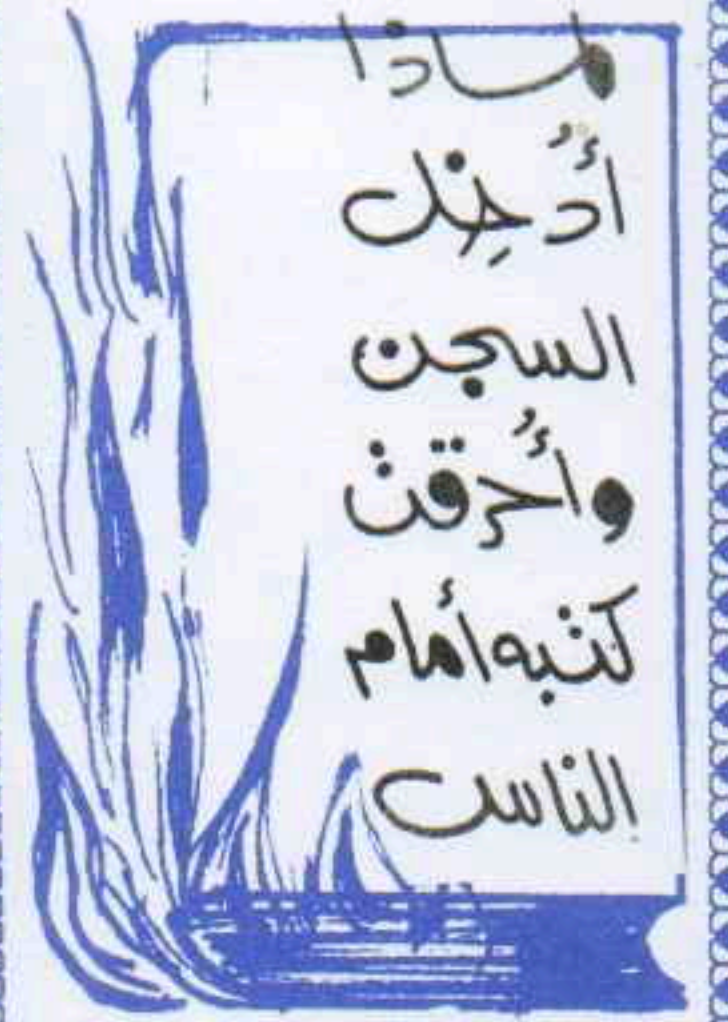 لماذا
أُدخِل
السجن
وأُحرقت
كتبه أمام
الناس